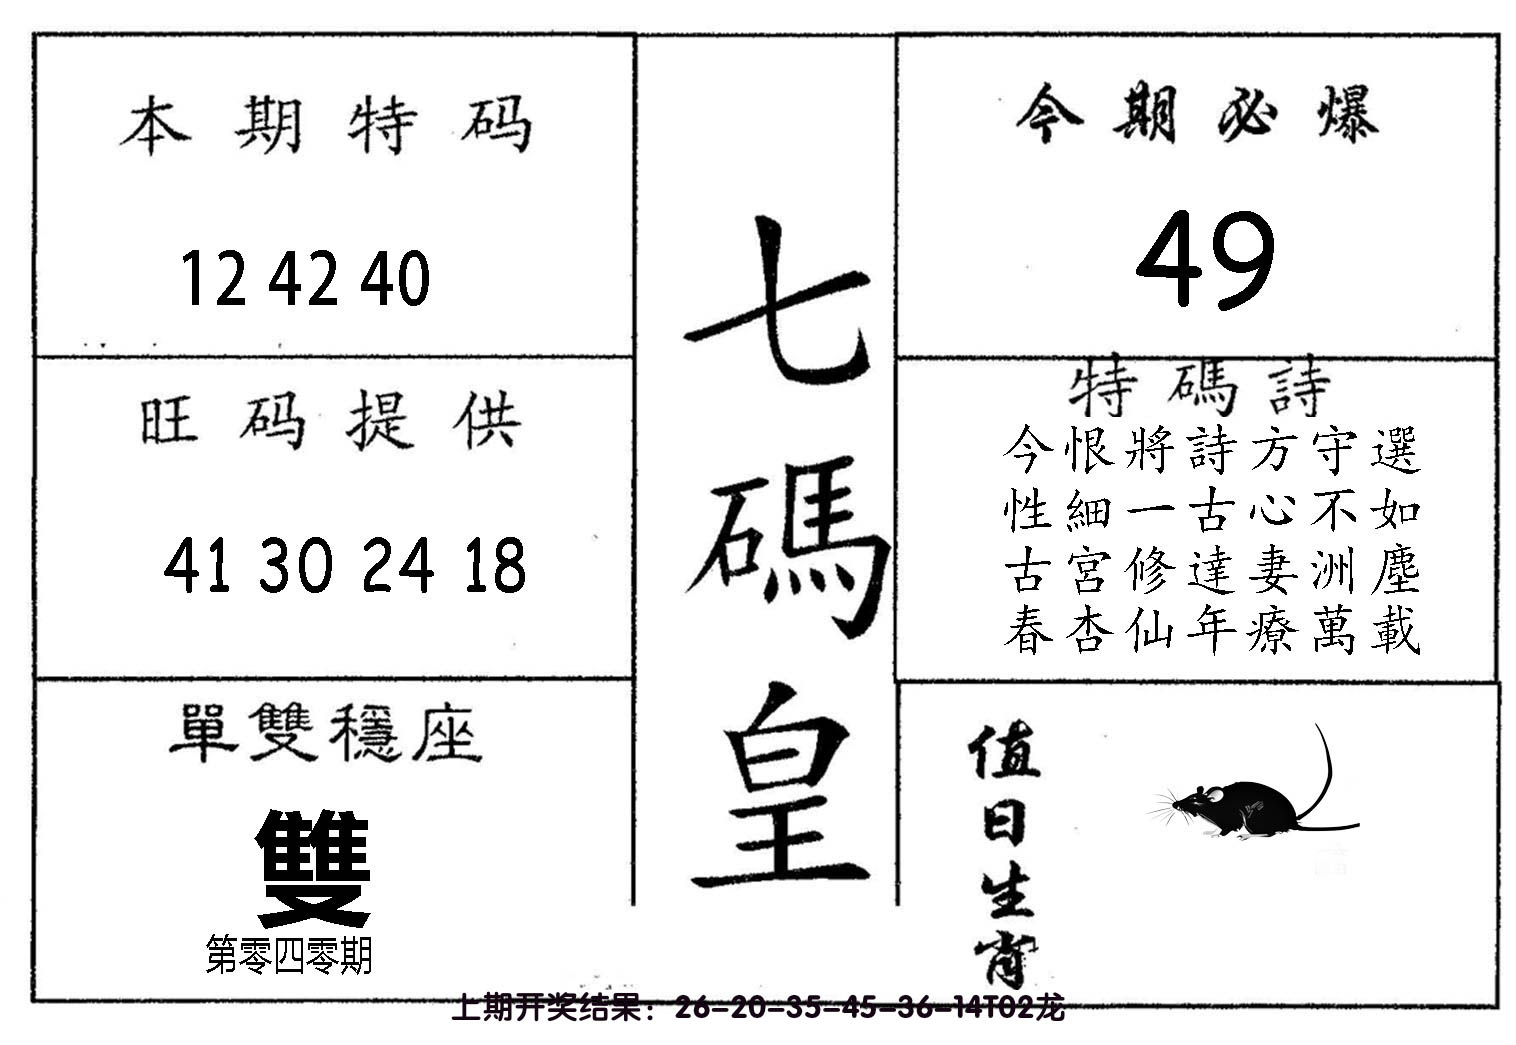 本期特码
12 42 40
旺码提供
41 30 24 18
單雙穩座
雙
第零四零期
七碼皇
今期必爆
49
特碼詩
今恨將詩方守選
性細一古心不如
古宮修達妻洲塵
春杏仙年療萬載
值日生肖
上期开奖结果：26-20-35-45-36-14T02龙